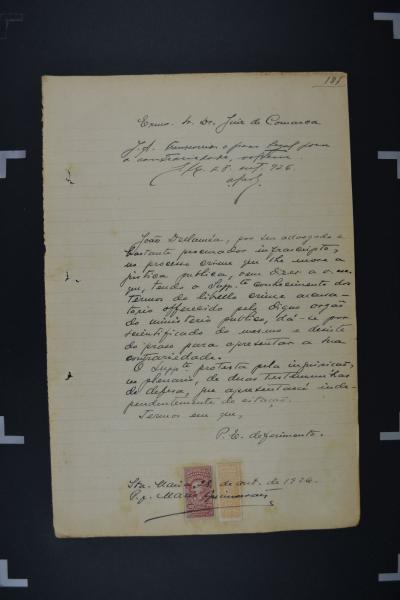 181
Exmo. Sr. Dr. Juiz de Comarca
J. A. legal para
a contrariedade,
28. 926.
João Dellaméa, por seu advogado e
bastante procurador infrascripto,
no processo crime que lhe move a
justiça publica, vem dizer a
que, tendo o Supp.te conhecimento dos
termos do libello crime accusa-
torio offerecido pelo digno orgão
do ministerio publico, dá-se por
scientificado do mesmo e desiste
do praso para apresentar a sua
contrariedade.
O Supp.te protesta pela inquirição,
no plenario, de duas testemunhas
de defesa, que apresentará inde-
pendentemente de citação.
Termos em que,
P. E. deferimento.
Sta. Maria, 28 de out. de 1926.
P. p. Guimarães